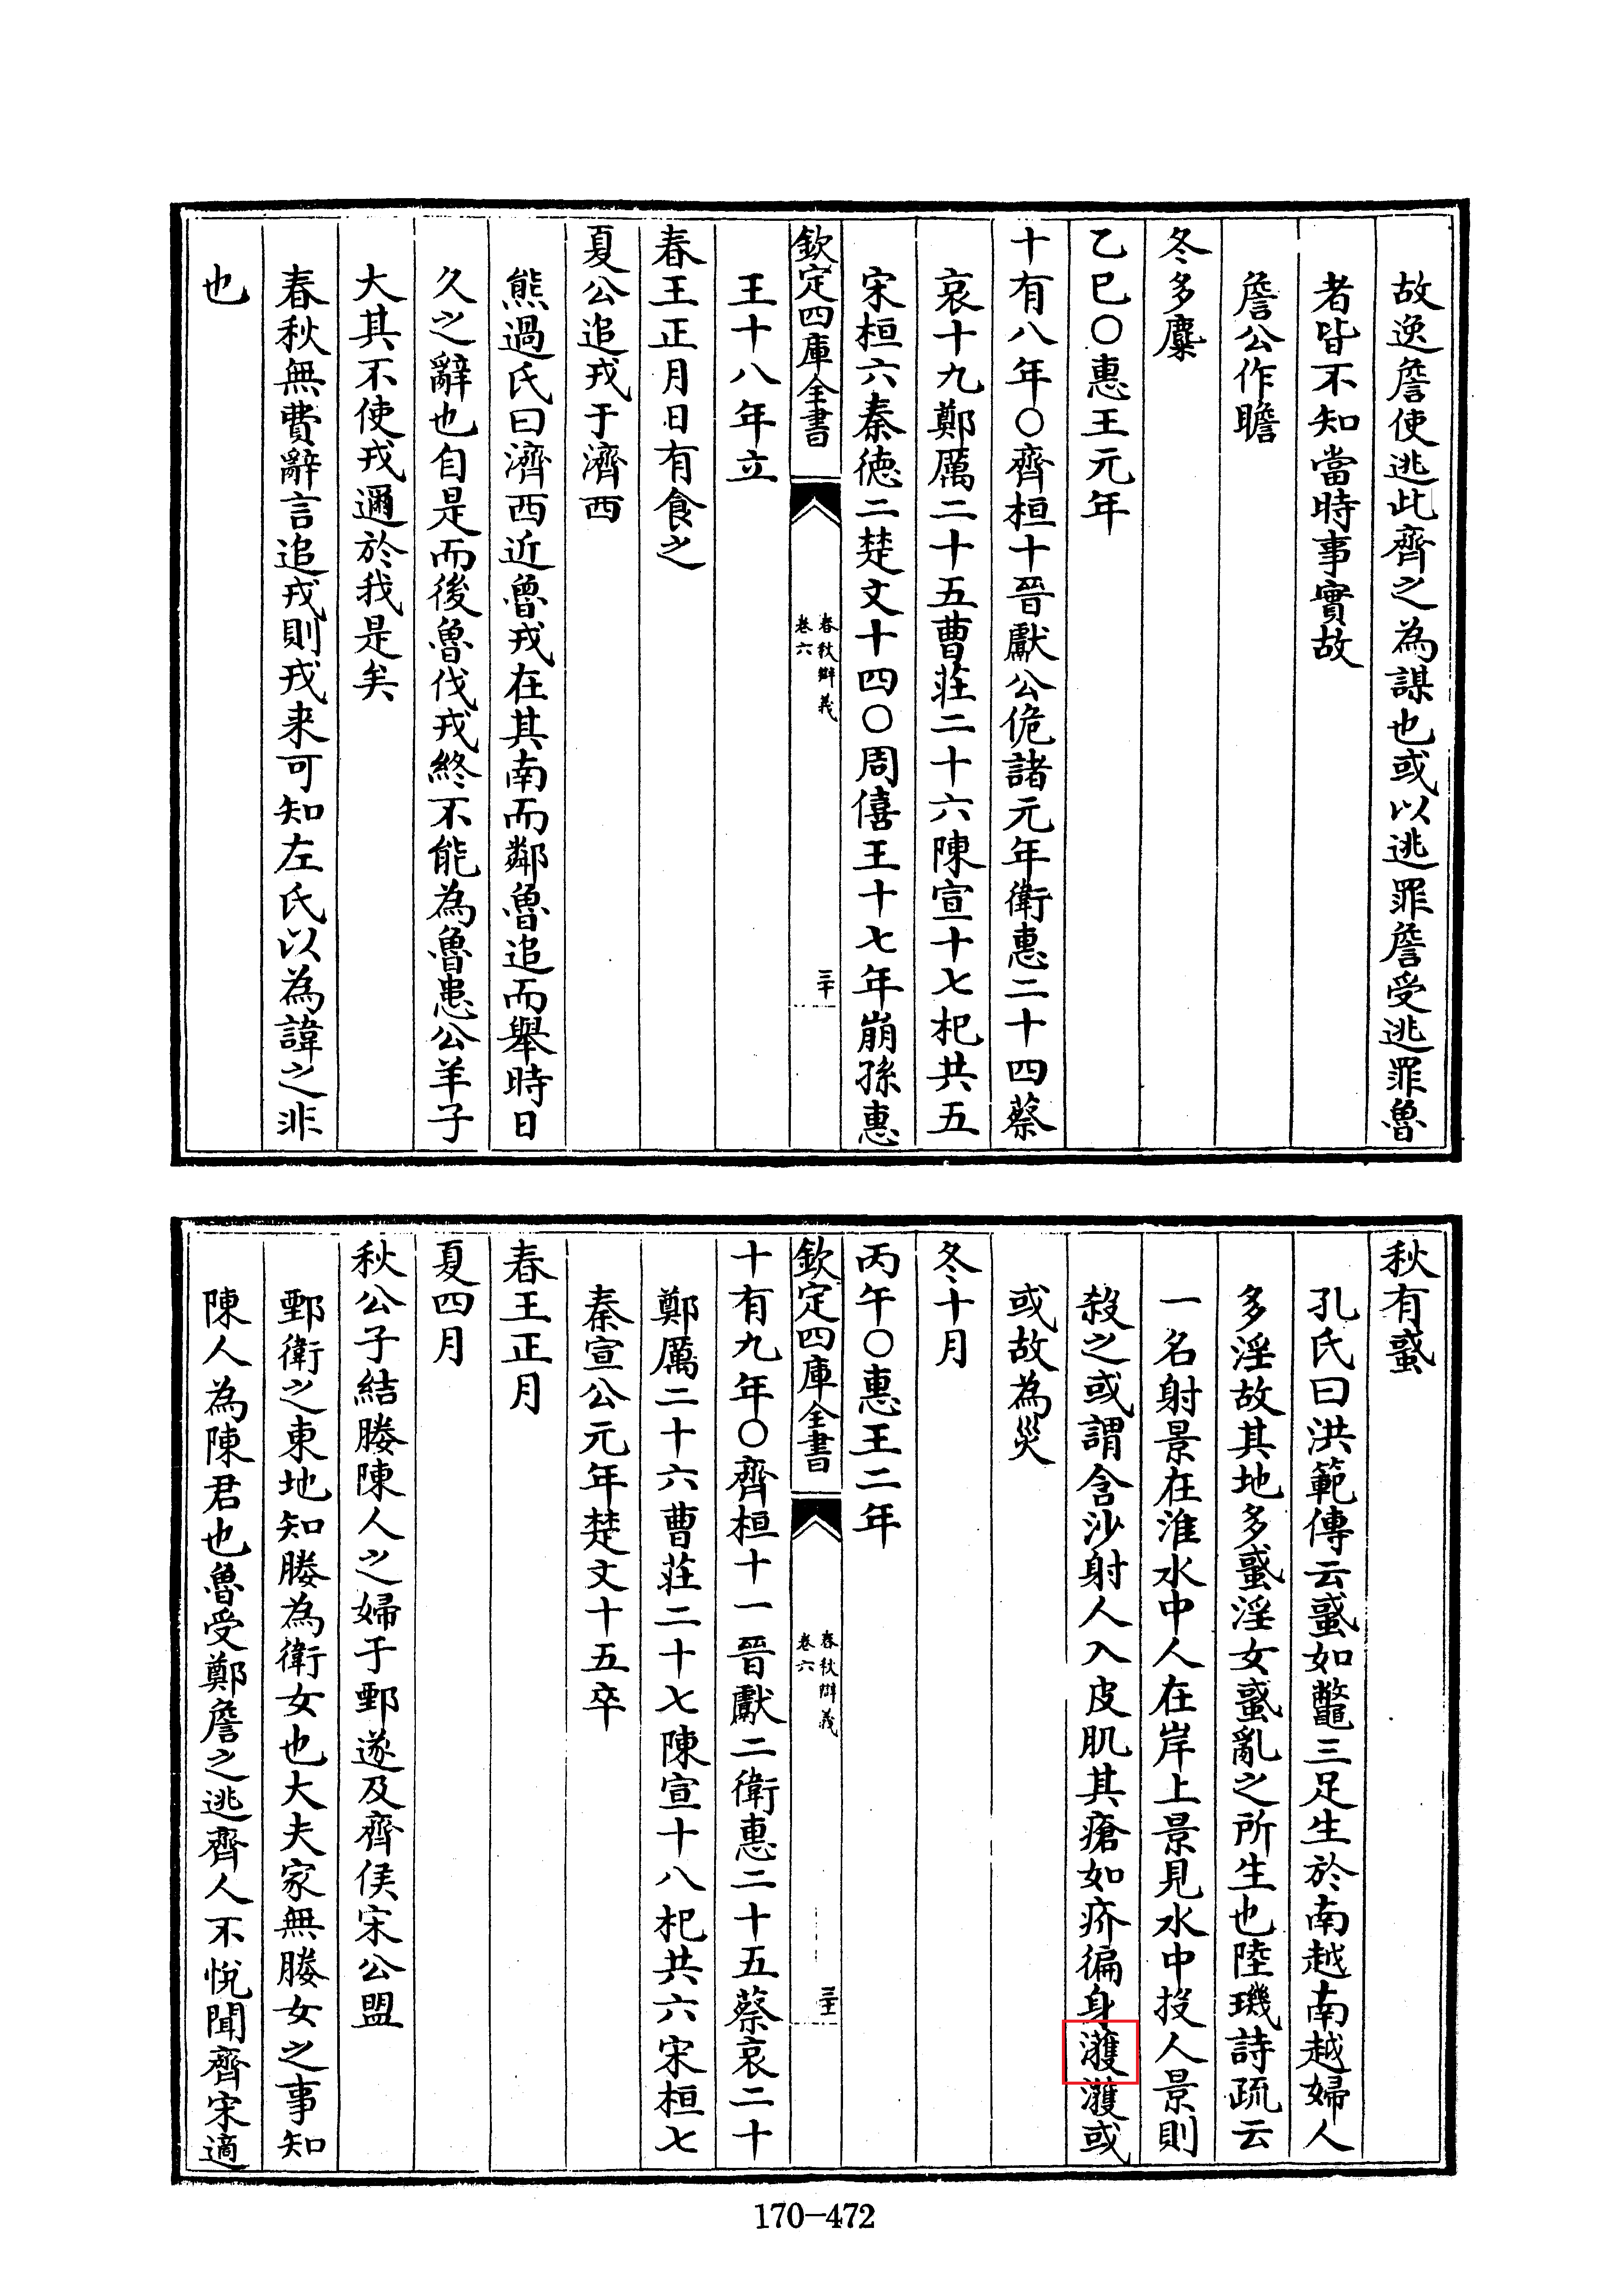 故逸詹使逃此齊之為謀也或以逃罪詹受逃罪魯
者皆不知當時事實故
詹公作瞻
冬多麋
乙巳○惠王元年
十有八年○齊桓十晉獻公佹諸元年衛惠二十四蔡
哀十九鄭厲二十五曹莊二十六陳宣十七杞共五
宋桓六秦徳二楚文十四○周僖王十七年崩孫惠
欽定四庫全書
春秋辯義
卷六
三十
王十八年立
春王正月日有食之
夏公追戎于濟西
熊過氏曰濟西近魯戎在其南而鄰魯追而舉時日
久之辭也自是而後魯伐戎終不能為魯患公羊子
大其不使戎邇於我是矣
春秋無費辭言追戎則戎来可知左氏以為諱之非
也
秋有蜮
孔氏曰洪範傳云蜮如鼈三足生於南越南越婦人
多淫故其地多蜮淫女惑亂之所生也陸璣詩疏云
一名射景在淮水中人在岸上景見水中投人景則
殺之或謂含沙射人入皮肌其瘡如疥徧身濩濩或
或故為災
冬十月
丙午○惠王二年
欽定四庫全書
春秋辯義
卷六
三十一
十有九年○齊桓十一晉獻二衛惠二十五蔡哀二十
鄭厲二十六曹莊二十七陳宣十八杞共六宋桓七
秦宣公元年楚文十五卒
春王正月
夏四月
秋公子結媵陳人之婦于鄄遂及齊侯宋公盟
鄄衛之東地知媵為衛女也大夫家無媵女之事知
陳人為陳君也魯受鄭詹之逃齊人不悅聞齊宋適
170-472